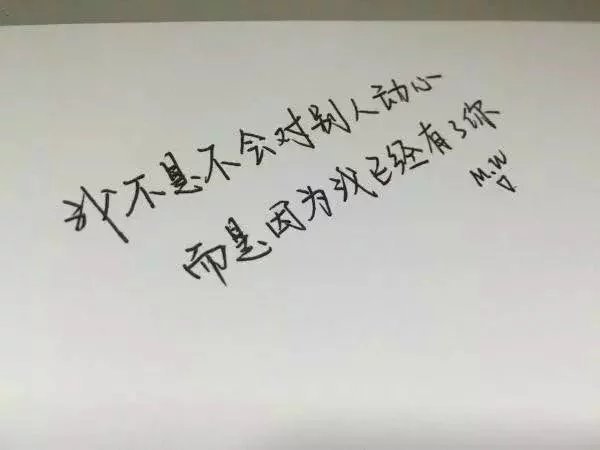 我不是不会对别人动心
而是因为我已经有了你
M.W